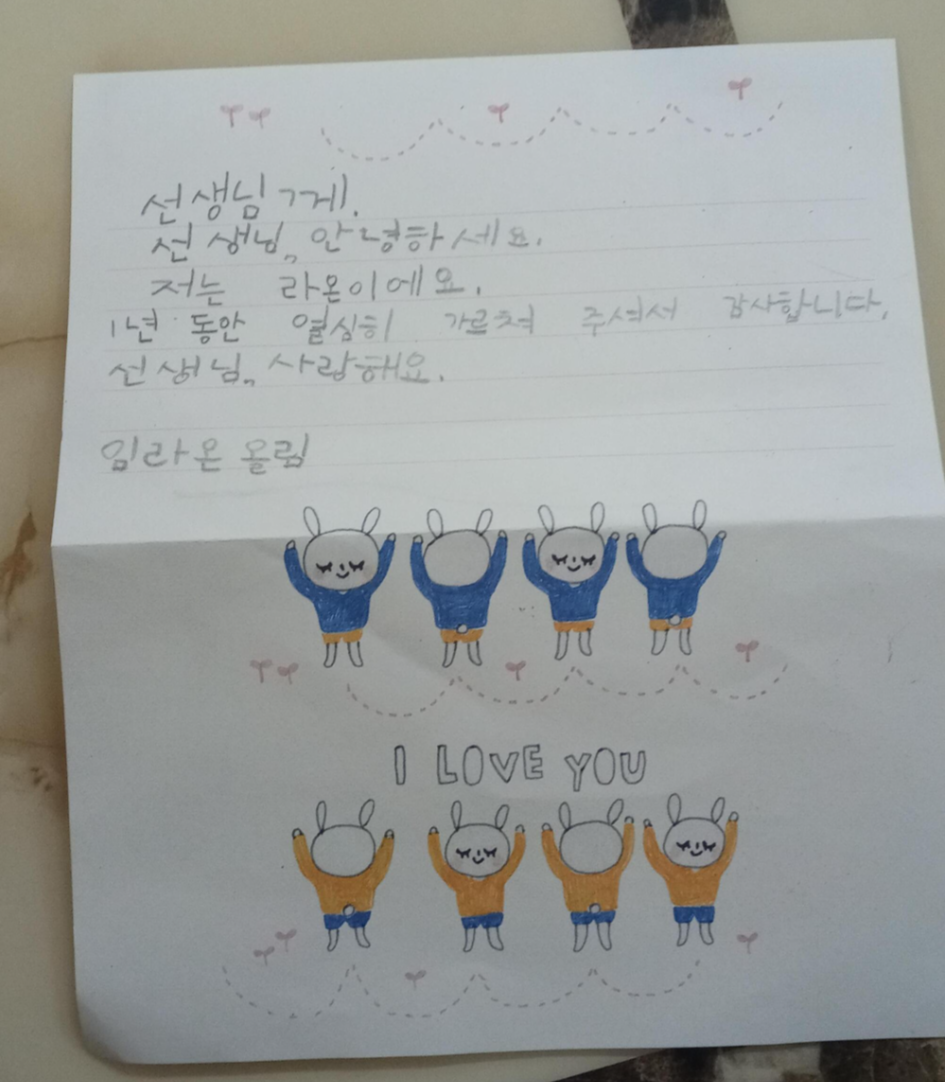 선생님께.
선생님, 안녕하세요.
저는 라온이에요.
1년 동안 열심히 가르쳐 주셔서 감사합니다.
선생님, 사랑해요.
임라온 올림
I LOVE YOU